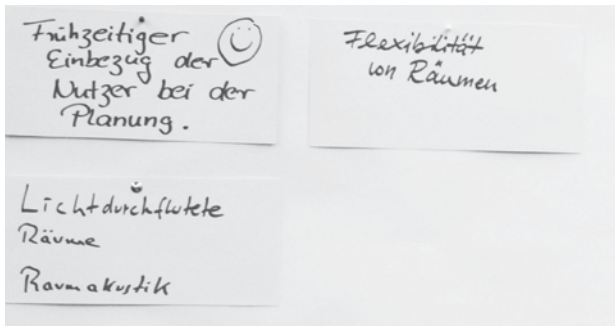 Frühzeitiger
Einbezug der
Nutzer bei der
Planung.
Flexibilität
von Räumen
Lichtdurchflutete
Räume
Raumakustik